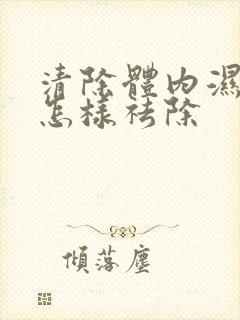 清除體內濕
怎樣祛除
傾落塵